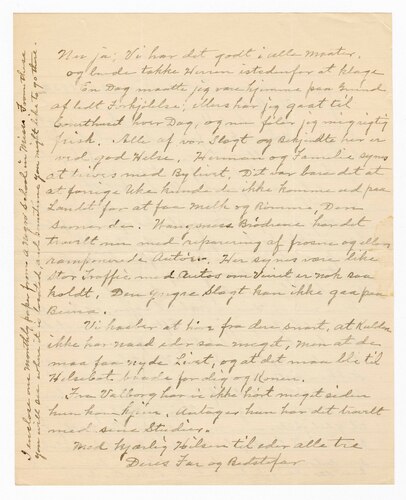 Nu ja; Vi har det godt i alle Maater,
og burde takke Herren istedenfor at klage
En Dag maatte jeg være hjemme paa Grund
af lidt Forkjølelse; ellers har jeg gaat til
hver Dag, og nu føler jeg mig rigtig
frisk. Alle af vor Slægt og Bekjendte her er
ved god Helse. Herman og Familie synes
at trives med Bylivet, Det var bare det at
at forrige Uke kunde de ikke komme ud paa
Landet for at faa Melk og Rømme, Den
samme den. Brødrene har det
travlt nu med reparering af frosne og eller
ramponerede Autos. Her synes være like
stor Traffic med Autos om Vinteren er nok saa
koldt. Den yngre Slægt kan ikke gaa paa
Bena.
Vi haaber at høre fra dere snart, at Kulden
ikke har naad eder saa meget, men at de
maa faa nyde Livet, og at det maa bli til
Helsebot, baade for dig og Konen.
Fra Valborg har vi ikke hørt meget siden
hun kom hjem. Antager hun har det travlt
med sine Studier.
Med kjærlig Hilsen til eder alle tre
Deres Far og Bedstefar
I enclose one monthly paper from a negro school in Miss. From these
you will see where it is located and sometime you might like to go there.